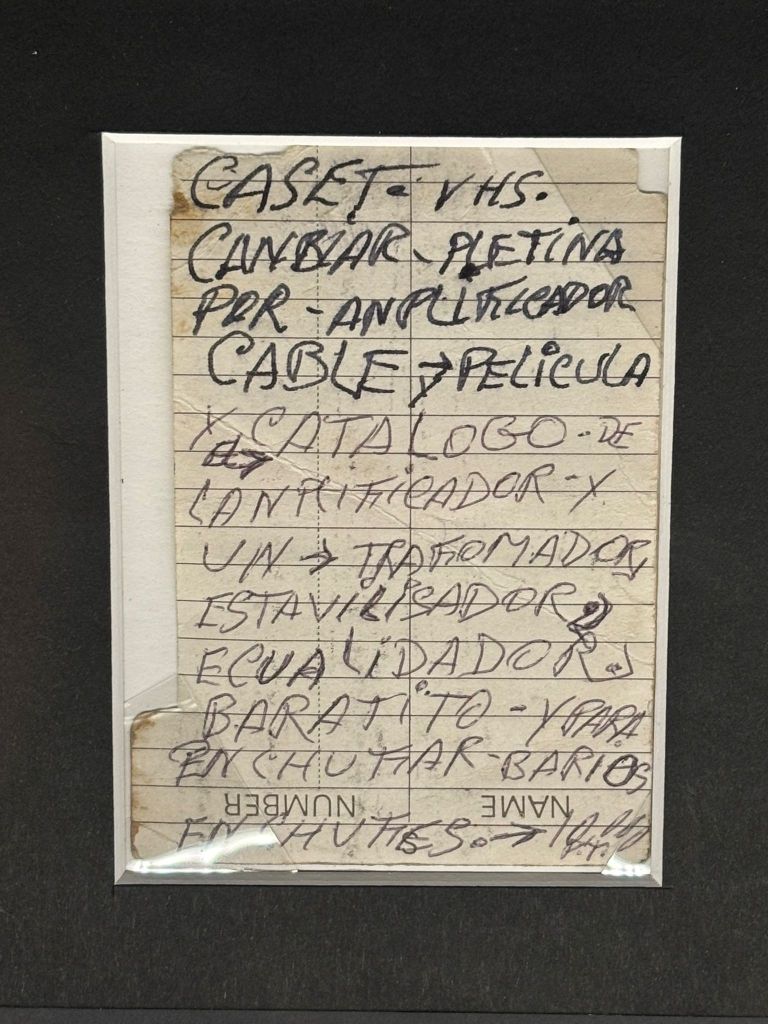 CASET- VHS.
CANBIAR - PLETINA
POR - ANPLIFICADOR
CABLE → PELICULA
X CATALOGO - DE
LANPLIFICADOR - X
UN → TRAFOMADOR,
ESTAVILISADOR
ECUALIDADOR
BARATITO - Y PARA
ENCHUFAR - BARIOS
NUMBER NAME
ENCHUFES. →